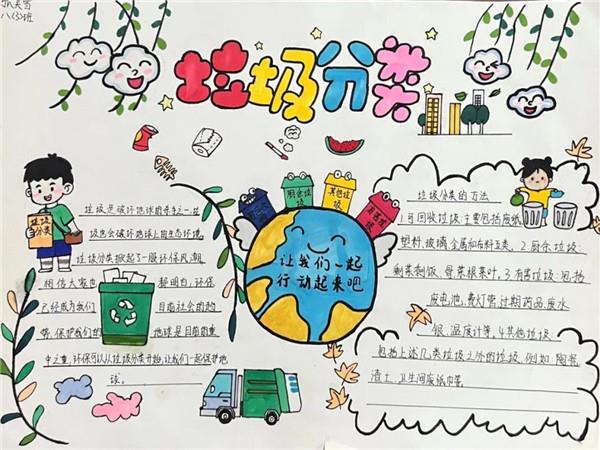 八(3)班
垃圾分类
垃圾
分类
厨余垃圾
其他垃圾
有害垃圾
让我们一起
行动起来吧
垃圾是破坏地球的杀手之一,垃
圾也会破坏地球上的生态环境
垃圾分类掀起了一股环保风潮
相信大家也 都明白,环保
已经成为我们 目前社会的趋
势,保护我们的 地球是目前的重
中之重,环保可以从垃圾分类开始,让我们一起保护地
球。
垃圾分类的方法
1.可回收垃圾:主要包括废纸
塑料、玻璃、金属和布料五类、2.厨余垃圾:
剩菜剩饭、骨菜根菜叶、3.有害垃圾:包括
废电池、费灯管、过期药品、废水
银、温度计等、4.其他垃圾:
包括上述几类垃圾之外的垃圾,例如:陶瓷、
渣土、卫生间废纸巾等。